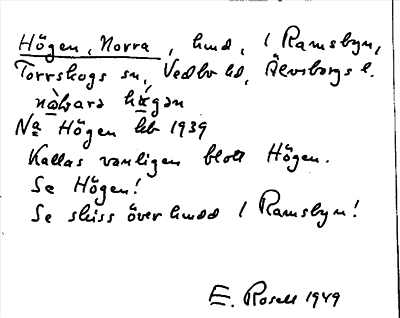 Högen, Norra, hmd, 1 Ramsbyn,
Torrskogs sn, Vedbo hd, Älvsborgs l.
nàṷara hǿgən
Na Högen hb 1939
Kallas vanligen blott Högen.
Se Högen!
Se skiss över hmdd 1 Ramsbyn!
E. Rosell 1949